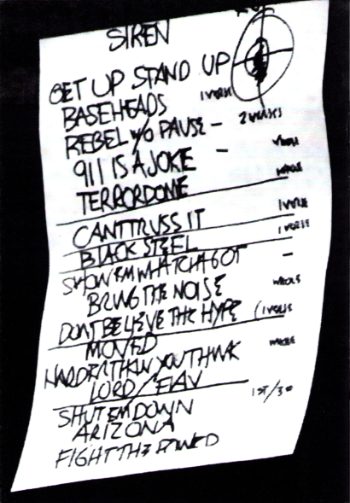 SIREN
GET UP STAND UP
BASEHEADS 1 VERSE
REBEL W/O PAUSE - 2 VERSES
911 IS A JOKE -
TERRORDOME WHOLE
CANT TRUSS IT 1 VERSE
BLACK STEEL 1 VERSE
SHOW EM WHATCHA GOT -
BRING THE NOISE WHOLE
DONT BELIEVE THE HYPE
MOVED WHOLE
HARDER THAN YOU THINK
LORD / FLAV
SHUT EM DOWN 1ST/3RD
ARIZONA
FIGHT THE POWER